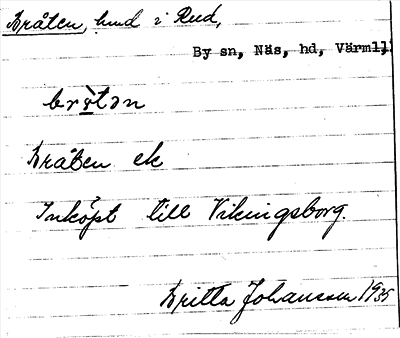 Bråten, hmd i Rud,
By sn, Näs, hd, Värml,
Bråten ek
Inköpt till Vikingsborg.
Britta Johansson 1935